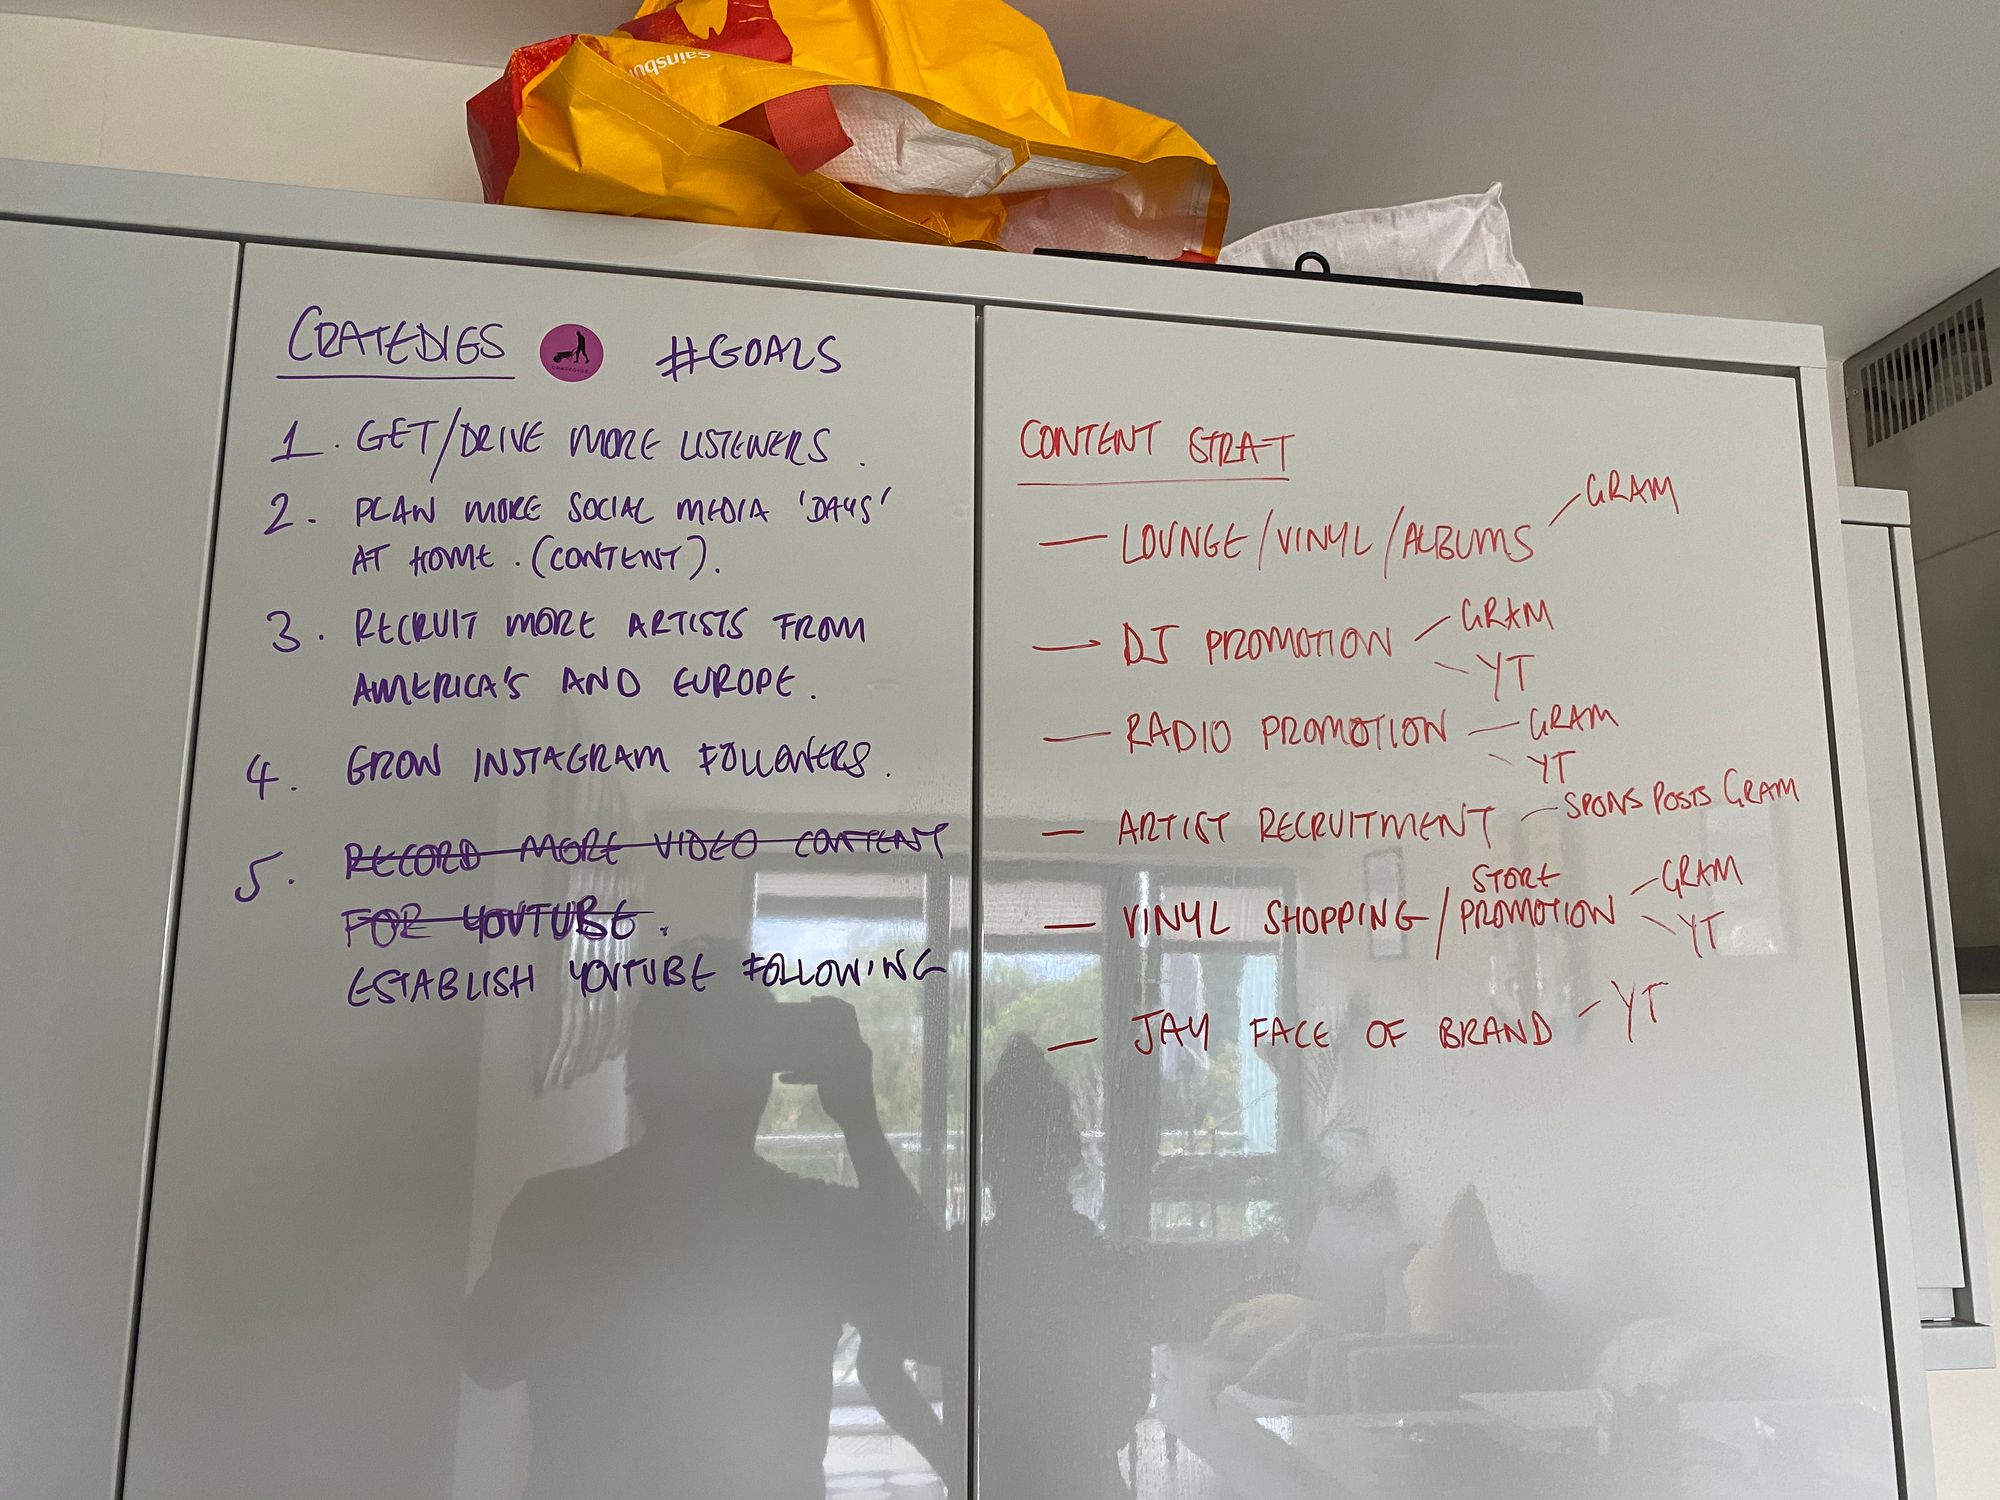 Sainsbu
CRATEDIGS #GOALS
CRATEDIGS
1. GET/DRIVE MORE LISTENERS.
2. PLAN MORE SOCIAL MEDIA 'DAYS'
AT HOME. (CONTENT).
3. RECRUIT MORE ARTISTS FROM
AMERICA'S AND EUROPE.
4. GROW INSTAGRAM FOLLOWERS.
5. RECORD MORE VIDEO CONTENT
FOR YOUTUBE.
ESTABLISH YOUTUBE FOLLOWING
CONTENT STRAT
— LOUNGE/VINYL/ALBUMS — GRAM
— DJ PROMOTION — GRAM
— YT
— RADIO PROMOTION — GRAM
— YT
— ARTIST RECRUITMENT — SPONS POSTS GRAM
— VINYL SHOPPING/STORE PROMOTION — GRAM
— YT
— JAY FACE OF BRAND — YT